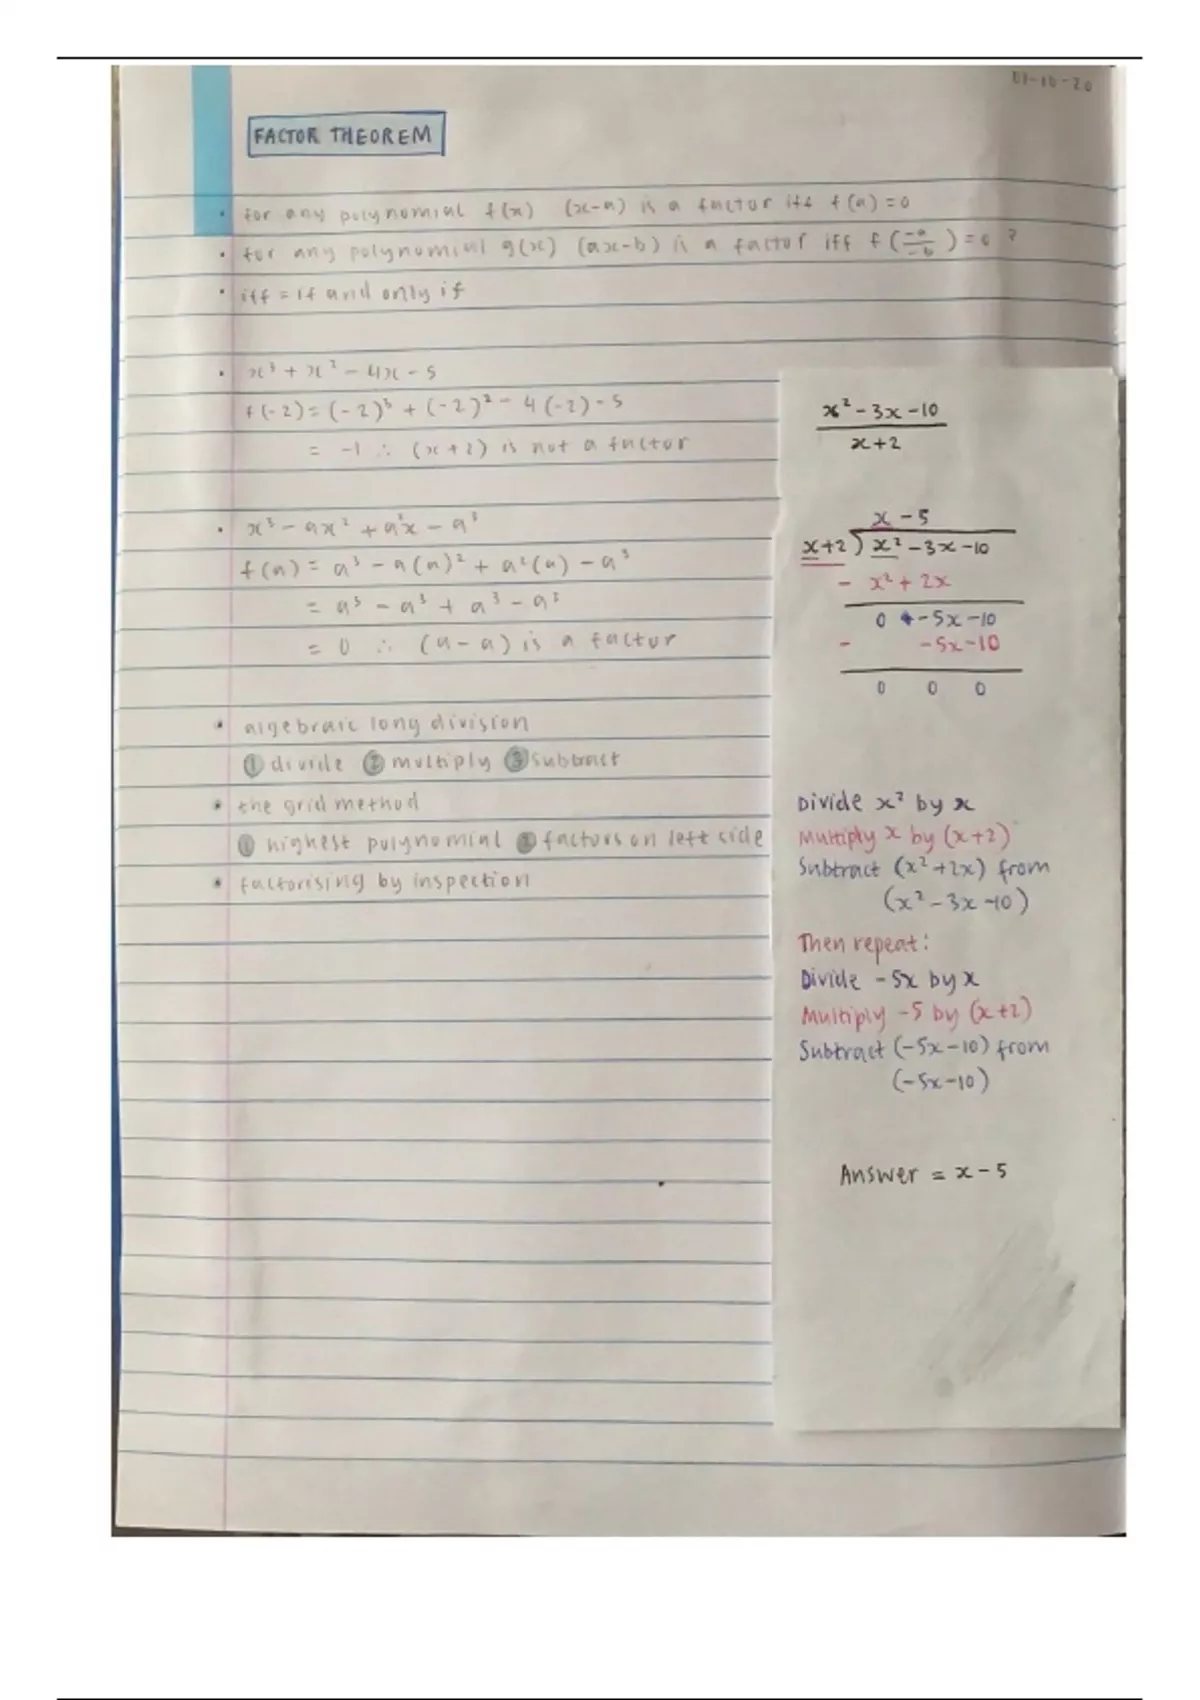 01-10-20
FACTOR THEOREM
• for any polynomial f(x) (x-a) is a factor iff f(a)=0
• for any polynomial g(x) (ax-b) is a factor iff f(-a/-b)=0 ?
• iff = if and only if
• x³ + x² - 4x - 5
f(-2) = (-2)³ + (-2)² - 4(-2) - 5
= -1 ∴ (x+2) is not a factor
• x³ - ax² + a²x - a³
f(a) = a³ - a(a)² + a²(a) - a³
= a³ - a³ + a³ - a³
= 0 ∴ (a-a) is a factor
• algebraic long division
① divide ② multiply ③ subtract
• the grid method
① highest polynomial ② factors on left side
• factorising by inspection
x² - 3x - 10
x+2
x - 5
x+2 ) x² - 3x - 10
- x² + 2x
0 + -5x - 10
- -5x - 10
0 0 0
Divide x² by x
Multiply x by (x+2)
Subtract (x² + 2x) from
(x² - 3x - 10)
Then repeat:
Divide -5x by x
Multiply -5 by (x+2)
Subtract (-5x - 10) from
(-5x - 10)
Answer = x - 5